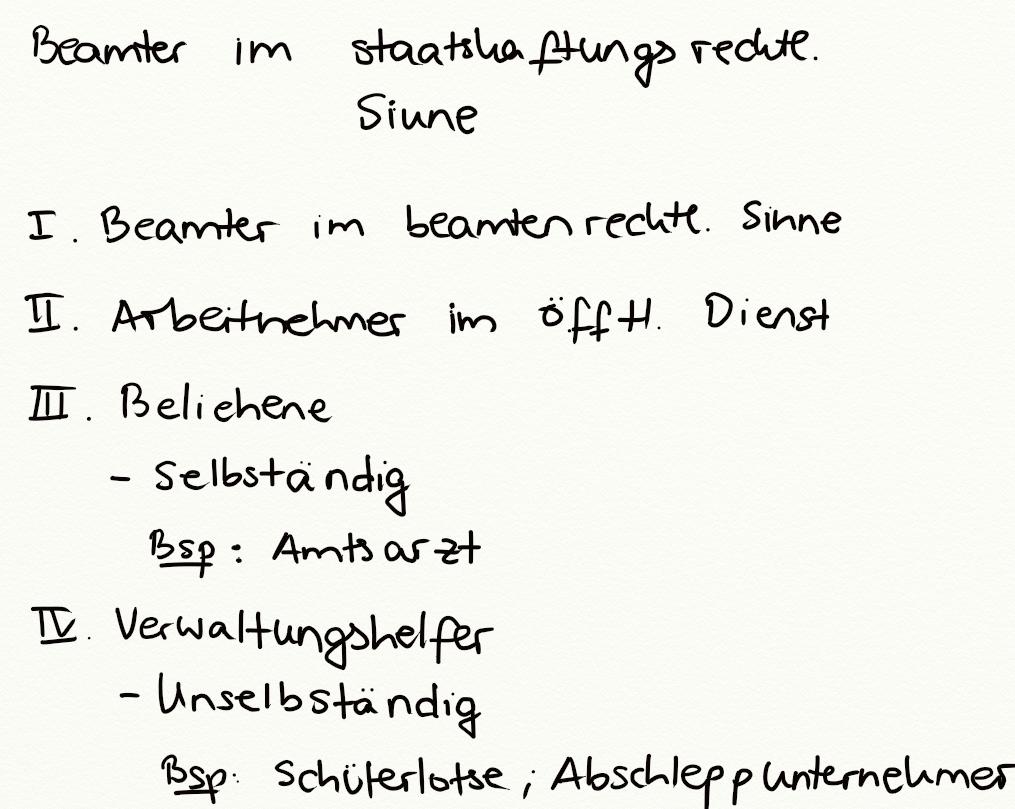 Beamter im staatshaftungsrechtl.
Sinne
I. Beamter im beamtenrechtl. Sinne
II. Arbeitnehmer im öfftl. Dienst
III. Beliehene
- Selbständig
Bsp: Amtsarzt
IV. Verwaltungshelfer
- Unselbständig
Bsp: Schülerlotse, Abschleppunternehmer